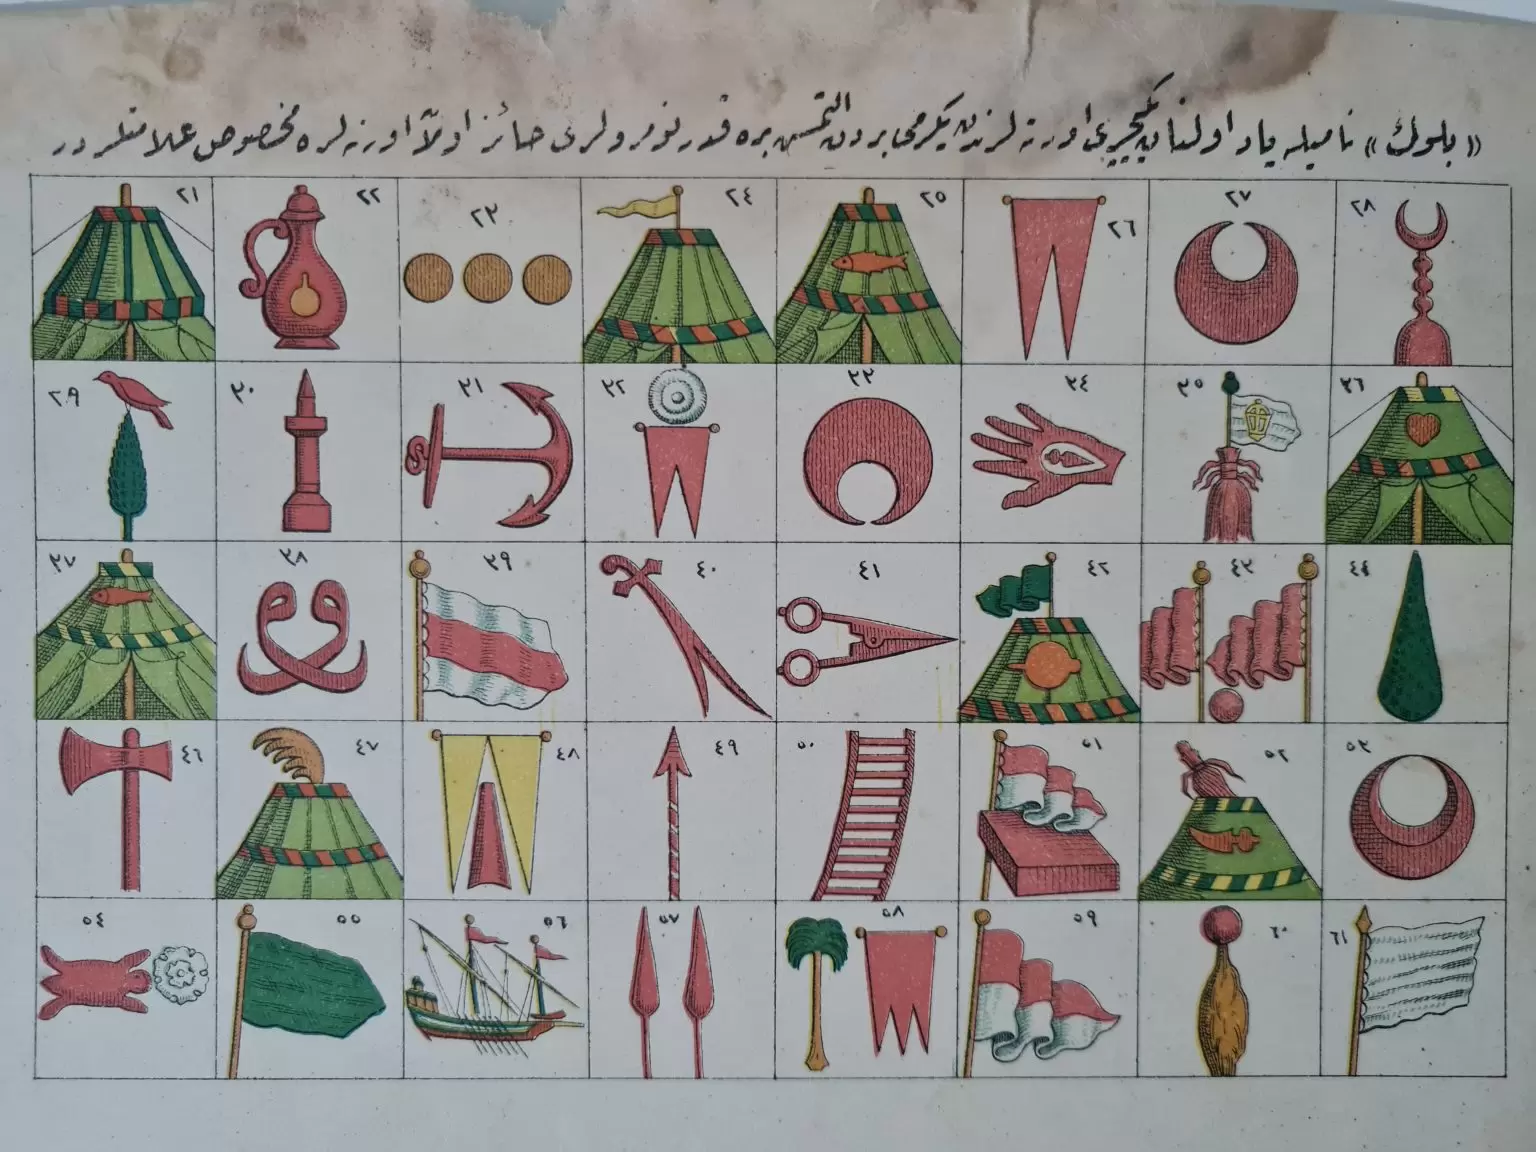 «بلوك» ناميله ياد اولنان يڭيچرى اورته لرندن يكرمى بردن التمش بره قدر نومرولرى حائز اولان اورته لره مخصوص علامتلردر
٢١
٢٢
٢٣
٢٤
٢٥
٢٦
٢٧
٢٨
٢٩
٣٠
٣١
٣٢
٣٣
٣٤
٣٥
٣٦
٣٧
٣٨
٣٩
٤٠
٤١
٤٢
٤٣
٤٤
٤٦
٤٧
٤٨
٤٩
٥٠
٥١
٥٢
٥٣
٥٤
٥٥
٥٦
٥٧
٥٨
٥٩
٦٠
٦١